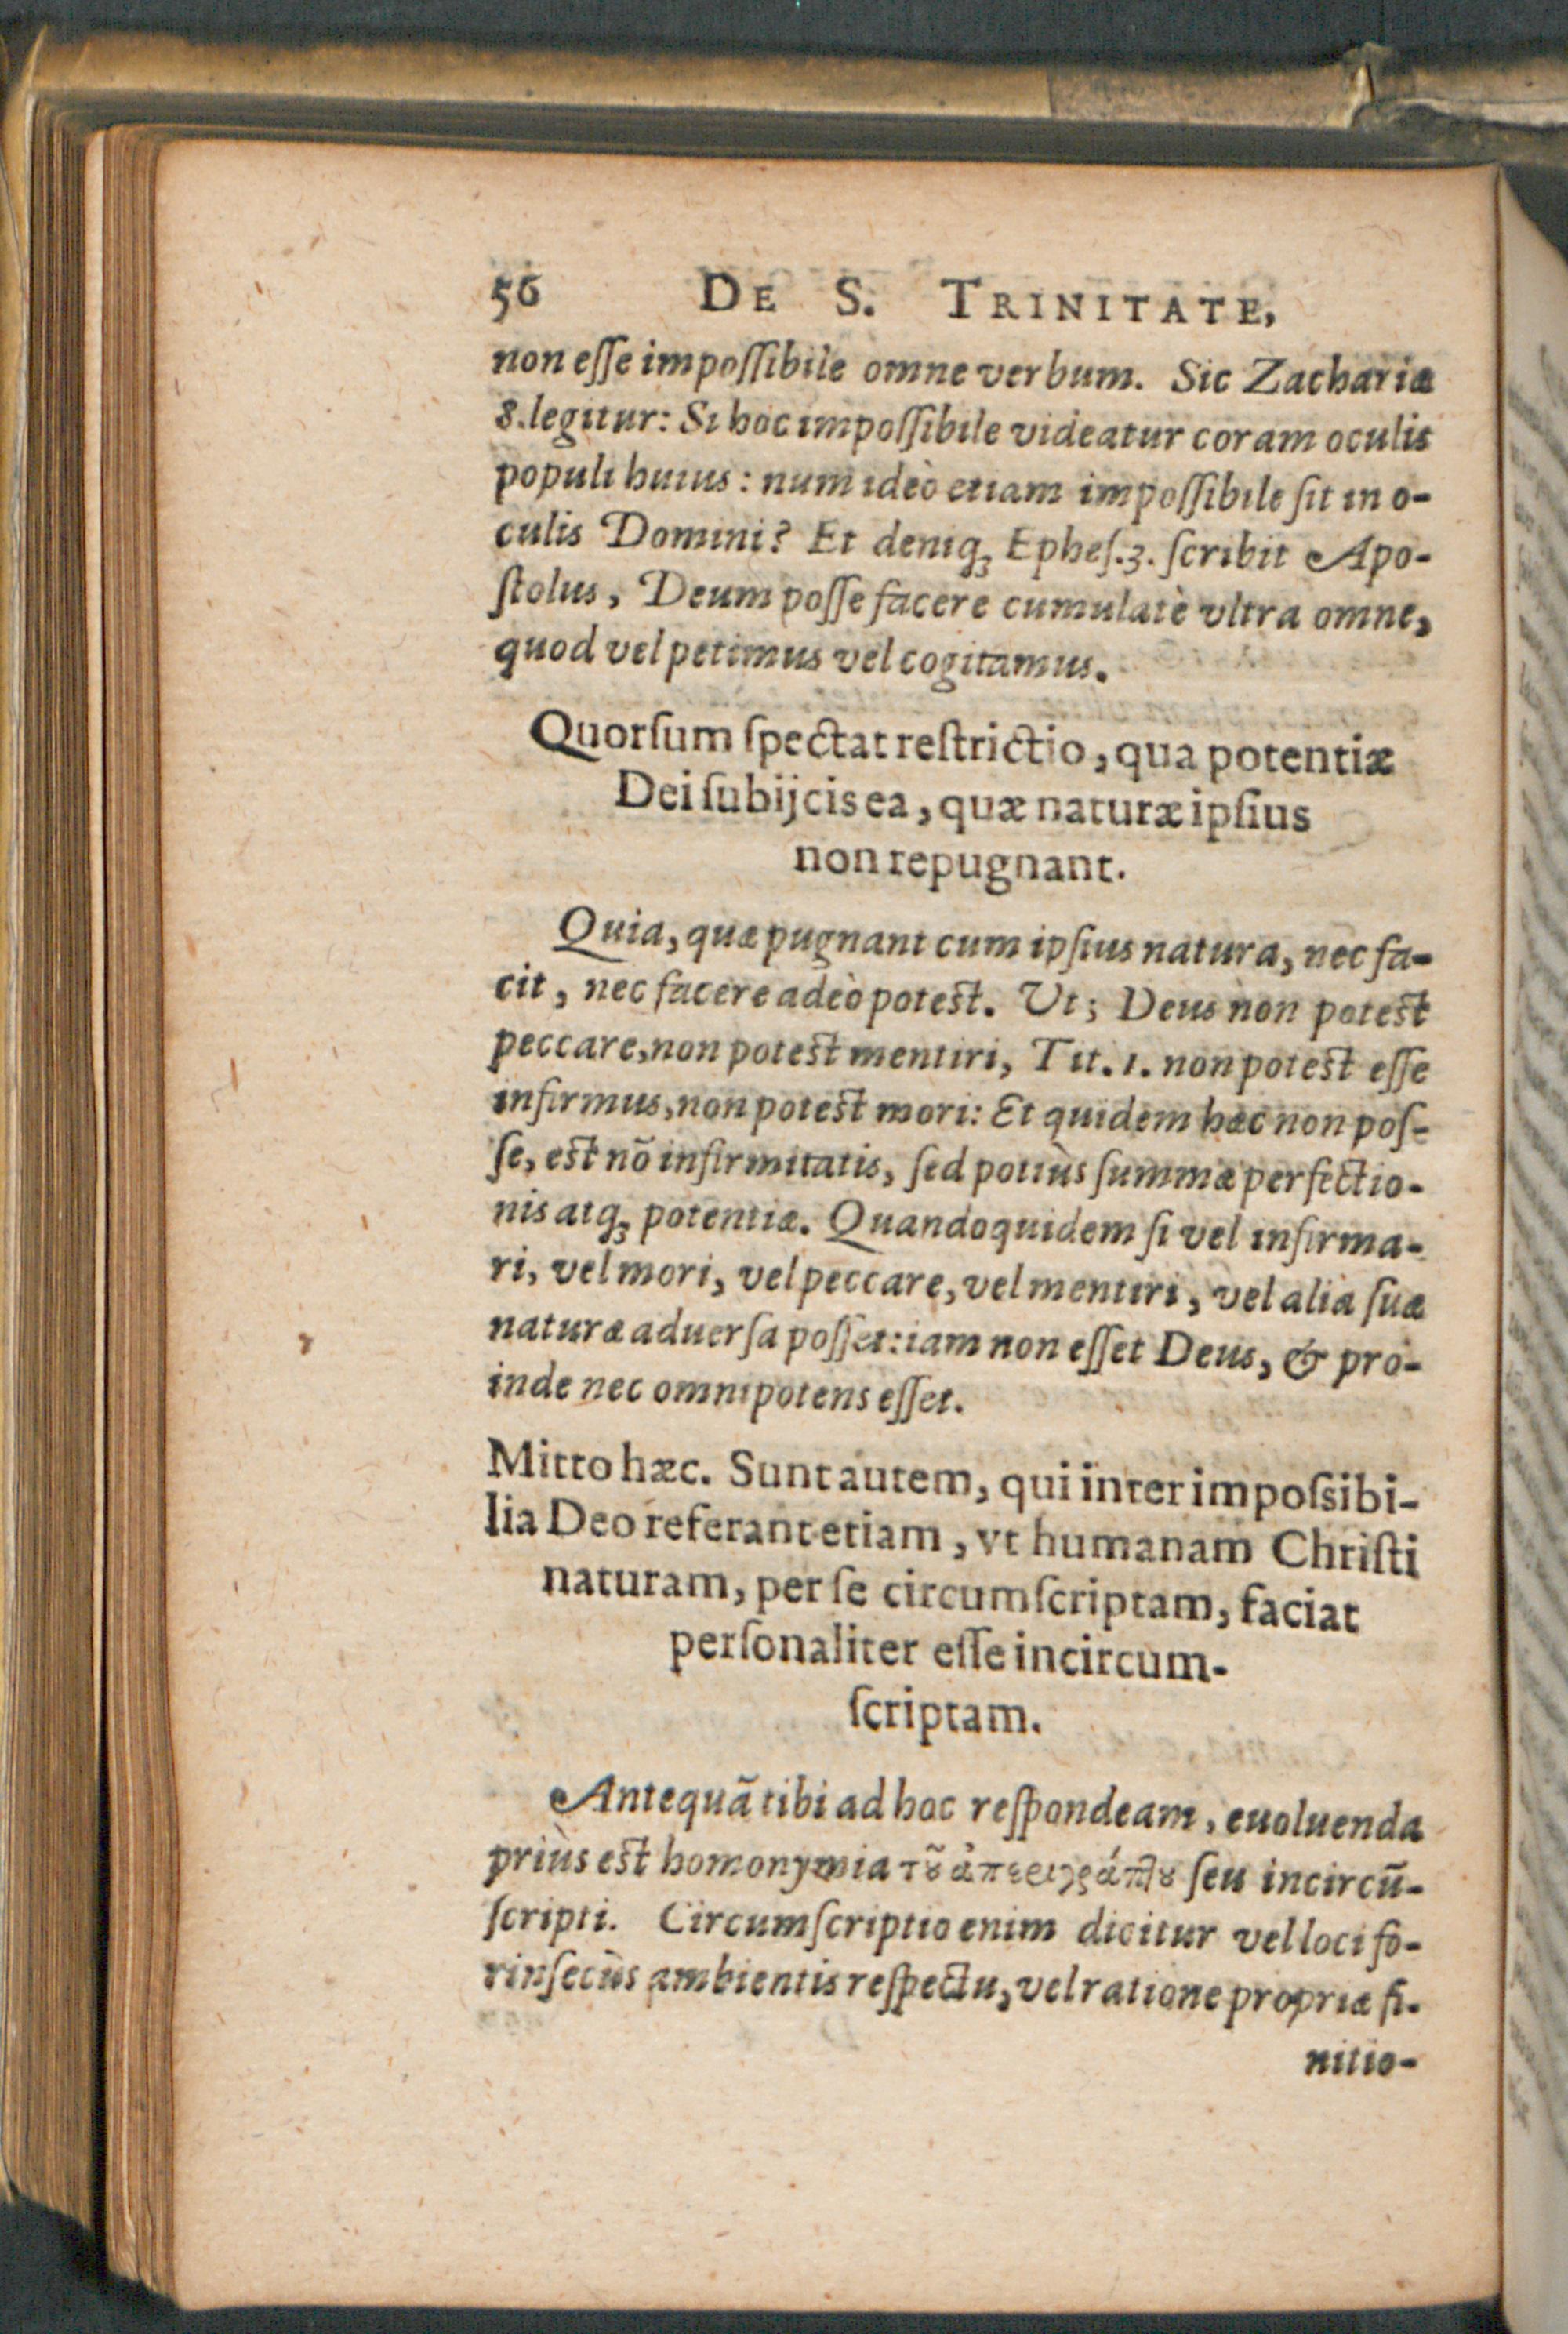 56 DE S. TRINITATE,
non eſſe impoſſibile omne verbum. Sic Zachariæ
8. legitur: Si hoc impoſſibile videatur coram oculis
populi huius: num ideò etiam impoſſibile ſit in o-
culis Domini? Et deniq; Epheſ. 3. ſcribit Apo-
ſtolus, Deum poſſe facere cumulatè vltra omne,
quod vel petimus vel cogitamus.
Quorſum ſpectat reſtrictio, qua potentiæ
Dei ſubijcis ea, quæ naturæ ipſius
non repugnant.
Quia, quæ pugnant cum ipſius natura, nec fa-
cit, nec facere adeò poteſt. Vt; Deus non poteſt
peccare, non poteſt mentiri, Tit. 1. non poteſt eſſe
infirmus, non poteſt mori: Et quidem hæc non poſ-
ſe, eſt nõ infirmitatis, ſed potiùs ſummæ perfectio-
nis atq; potentiæ. Quandoquidem ſi vel infirma-
ri, vel mori, vel peccare, vel mentiri, vel alia ſuæ
naturæ aduerſa poſſet: iam non eſſet Deus, & pro-
inde nec omnipotens eſſet.
Mitto hæc. Sunt autem, qui inter impoſsibi-
lia Deo referant etiam, vt humanam Chriſti
naturam, per ſe circumſcriptam, faciat
perſonaliter eſſe incircum-
ſcriptam.
Antequã tibi ad hoc reſpondeam, euoluenda
priùs eſt homonymia τȣ͂ ἀπεριγράπτȣ ſeu incircũ-
ſcripti. Circumſcriptio enim dicitur vel loci fo-
rinſecùs ambientis reſpectu, vel ratione propriæ fi-
nitio-